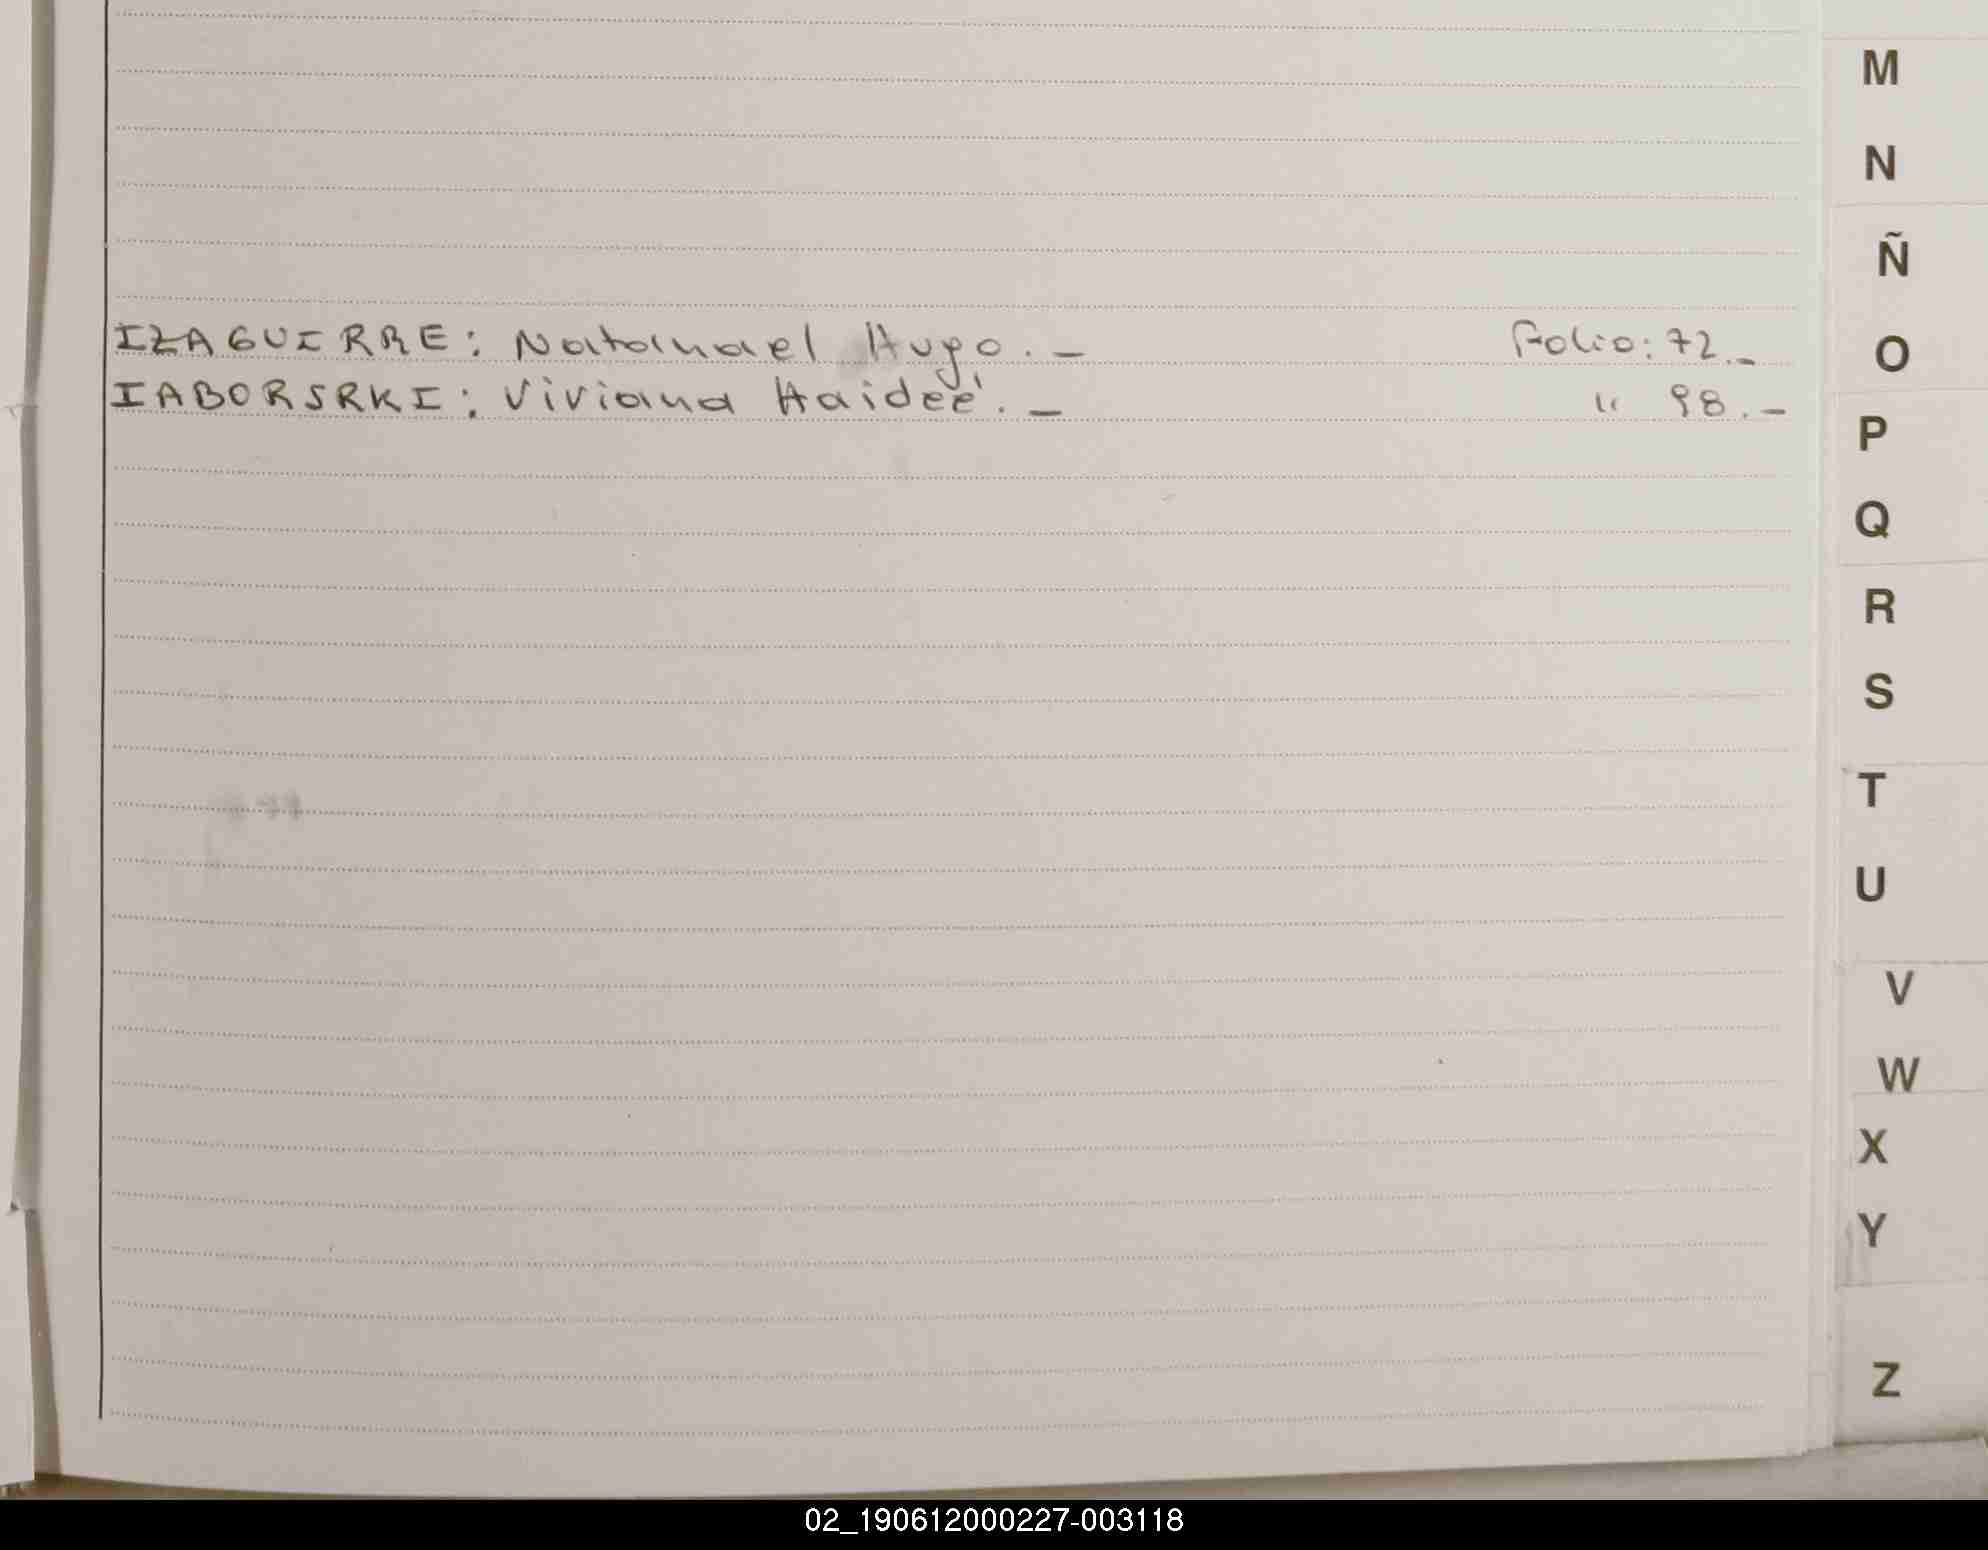 IZAGUIRRE: Natanael Hugo.- Folio: 72.-
IABORSRKI: Viviana Haideé.- " 98.-
M
N
Ñ
O
P
Q
R
S
T
U
V
W
X
Y
Z
02_190612000227-003118